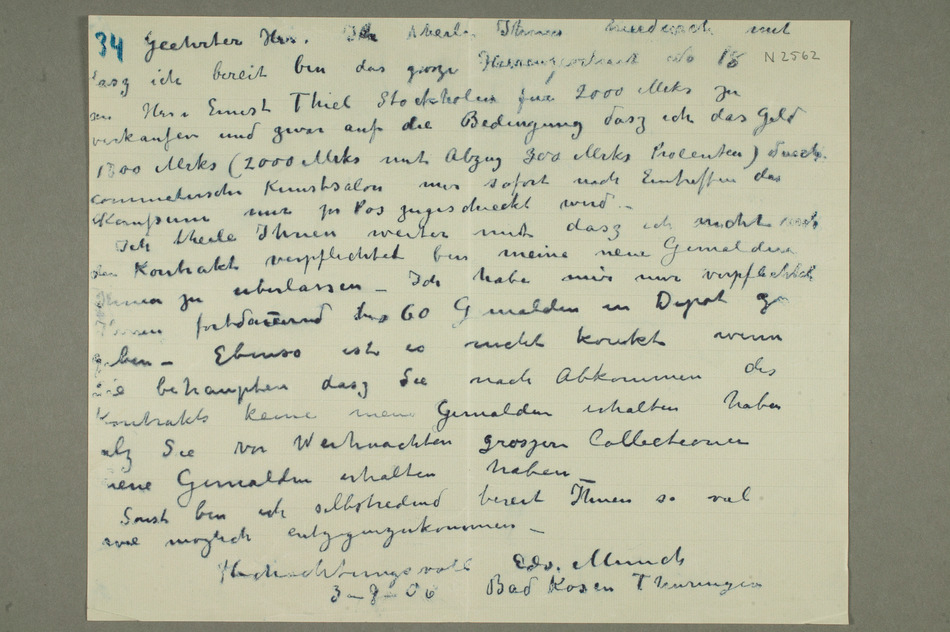 34 Geehrter Herr. Ich theile Ihnen hierdurch mit
N 2562
dasz ich bereit bin das grosze Herrenportrait No 18
an Herr Ernst Thiel Stockholm für 2000 Mrks zu
verkaufen und zwar auf die Bedingung dasz ich das Geld
1700 Mrks (2000 Mrks mit Abzug 300 Mrks Procenten) durch
Commeterschi Kunstsalon mir sofort nach Eintreffen das
mir zugeschickt wird.
Ich theile Ihnen weiter mit dasz ich nicht nach
den Kontrakt verpflichtet bin meine neue Gemälden
Ihnen zu uberlassen – Ich habe mir nur verpflichtet
Ihnen fortdauernd bis 60 Gemalden in Depot zu
geben – Ebenso ist es nicht korekt wenn
Sie behaupten dasz Sie nach Abkommen des
Kontrakts keine neue Gemalden erhalten haben
alz Sie vor Weihnachten groszere Collectionen
neue Gemalden erhalten haben
Sonst bin ich selbstredend bereit Ihnen so viel
wie moglich entgegenzukommen –
Hochachtungsvoll Edv. Munch
3–8–06 Bad Kosen Thuringen